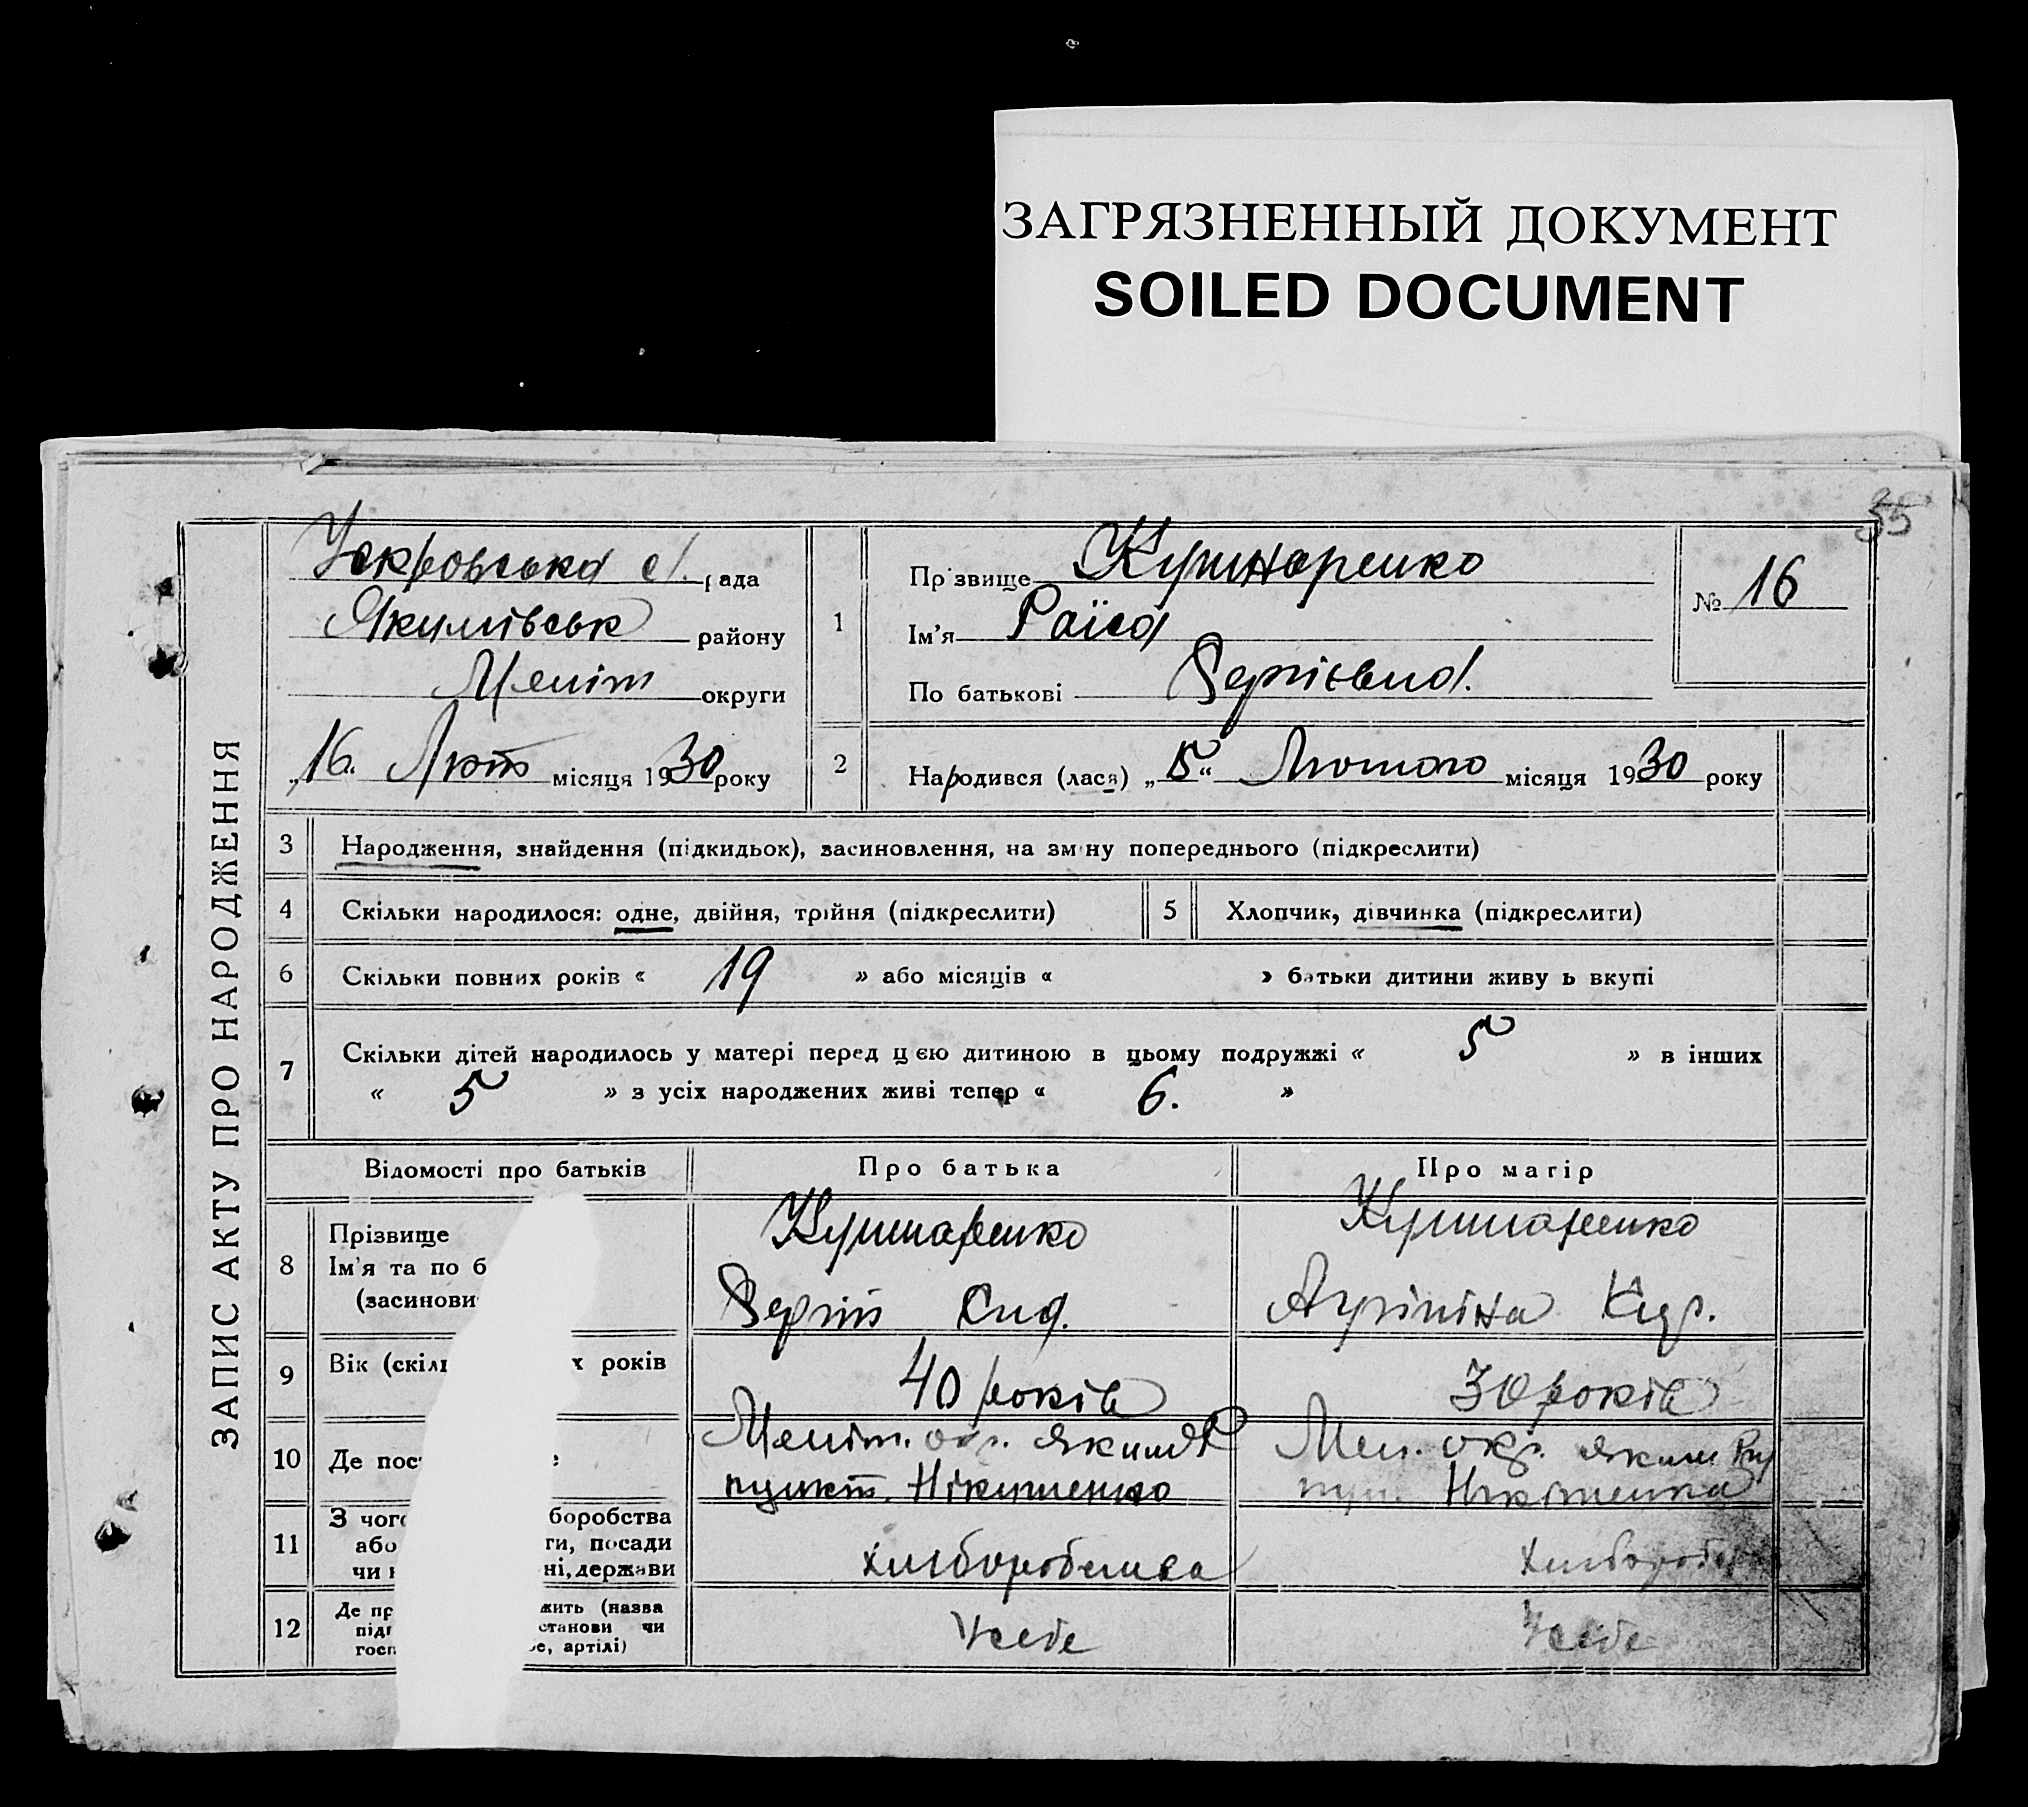 ЗАГРЯЗНЕННЫЙ ДОКУМЕНТ
SOILED DOCUMENT
35
ЗАПИС АКТУ ПРО НАРОДЖЕННЯ
рада
Якимівськ району
Меліт округи
„16. Лют місяця 1930 року
1
Прізвище
Ім'я Раїса
По батькові
№ 16
2
Народився (лася) „5“ Лютого місяця 1930 року
3 Народження, знайдення (підкидьок), засиновлення, на зміну попереднього (підкреслити)
4 Скільки народилося: одне, двійня, трійня (підкреслити)
5 Хлопчик, дівчинка (підкреслити)
6 Скільки повних років « 19 » або місяців « » батьки дитини живуть вкупі
7 Скільки дітей народилось у матері перед цією дитиною в цьому подружжі « 5 » в інших
« 5 » з усіх народжених живі тепер « 6. »
Відомості про батьків Про батька Про матір
8 Прізвище
Ім'я та по б
(засинови
Кушнаренко
Кушнаренко
9 Вік (скіль х років 40 років 30 років
10 Де пост е
Меліт. окр. Яким Р
пункт.
Мел. окр. Яким
11 З чого боробства
або ги, посади
чи н ні, держави
хліборобства
Хлібороб
12 Де пр жить (назва
підп станови чи
госп е, артілі)
У себе
У себе